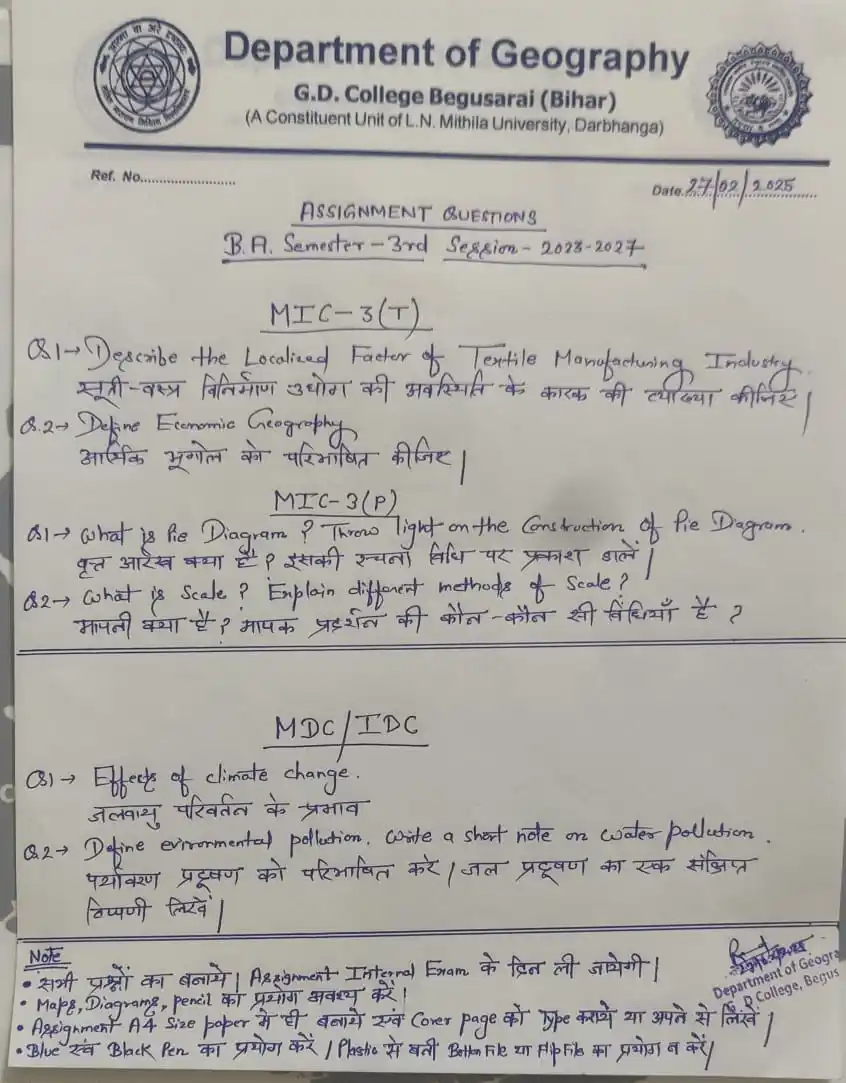 Department of Geography
G.D. College Begusarai (Bihar)
(A Constituent Unit of L.N. Mithila University, Darbhanga)
Ref. No........................
Date.27/02/2025
ASSIGNMENT QUESTIONS
B.A. Semester-3rd Session-2023-2027
MIC-3(T)
Q1→ Describe the Localized Factor of Textile Manufacturing Industry.
सूती-वस्त्र विनिर्माण उधोग की अवस्थिति के कारक की व्याख्या कीजिए|
Q.2→ Define Economic Geography
आर्थिक भूगोल को परिभाषित कीजिए|
MIC-3(P)
Q1→ What is Pie Diagram? Throw light on the Construction of Pie Diagram.
वृत्त आरेख क्या है? इसकी रचना विधि पर प्रकाश डालें|
Q2→ What is Scale? Explain different methods of Scale?
मापनी क्या है? मापक प्रदर्शन की कौन-कौन सी विधियाँ है?
MDC/IDC
Q1→ Effects of climate change.
जलवायु परिवर्तन के प्रभाव
Q.2→ Define evironmental pollution. Write a short note on water pollution.
पर्यावरण प्रदूषण को परिभाषित करे| जल प्रदूषण का एक संक्षिप्त
टिप्पणी लिखें|
Note
• सभी प्रश्नों का बनाये| Assignment Internal Exam के दिन ली जायेगी|
• Maps, Diagrams, pencil का प्रयोग अवश्य करें|
• Assignment A4 Size paper में ही बनाये एवं Cover page को Type कराये या अपने से लिखें|
• Blue एवं Black Pen का प्रयोग करें| Plastic से बनी Botton File या FlipFile का प्रयोग न करें|
Department of Geogra
College, Begus